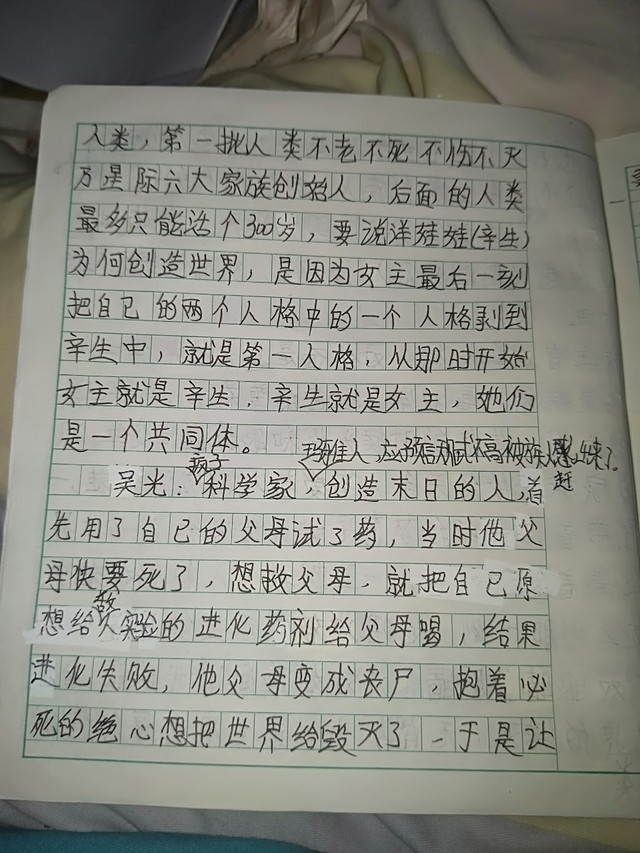 人类，第一批人类不老不死不伤不灭
万星际六大家族创始人，后面的人类
最多只能活个300岁，要说洋娃娃(辛生)
为何创造世界，是因为女主最后一刻
把自己的两个人格中的一个人格剥到
辛生中，就是第一人格，从那时开始
女主就是辛生．辛生就是女主，她们
是一个共同体。
人，应 被族人 出来了。
疯子 赶
吴光：科学家，创造末日的人，首
先用了自己的父母试了药，当时他父
母快要死了，想救父母．就把自己原
想给人实验的进化药剂给父母喝，结果
进化失败，他父母变成丧尸，抱着必
死的绝心想把世界给毁灭了，于是让